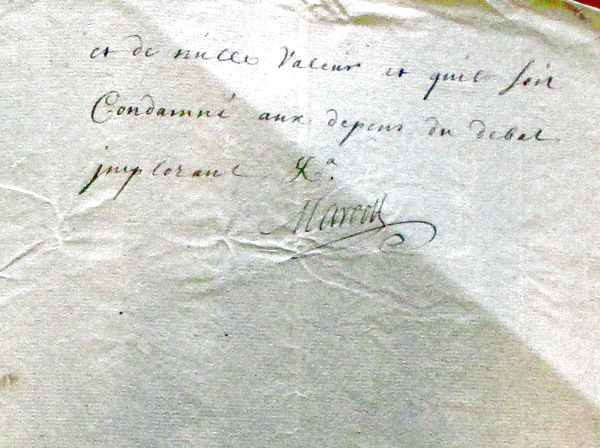 et de nulle Valeur et quil soit
Condamné aux depens du debat
implorant &a.